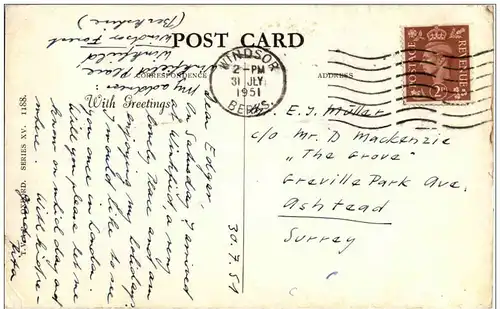 POST CARD
CORRESPONDENCE
ADDRESS
With Greetings
SERIES XV. 1188.
WINDSOR
2 - PM
31 JLY
1951
BERKS.
POSTAGE
REVENUE
My address:
Place
Winkfield
Windsor Forest
(Berkshire)
30.7.51
Dear Edgar,
On Saturday I arrived
at Winkfield, a very
lovely place and am
enjoying my holidays.
I would like to see
you once in London.
Will you please let me
know on which day and
where.
With kind re-
E. J. Müller
c/o Mr. D Mackenzie
"The Grove"
Greville Park Ave.
Ashtead
Surrey